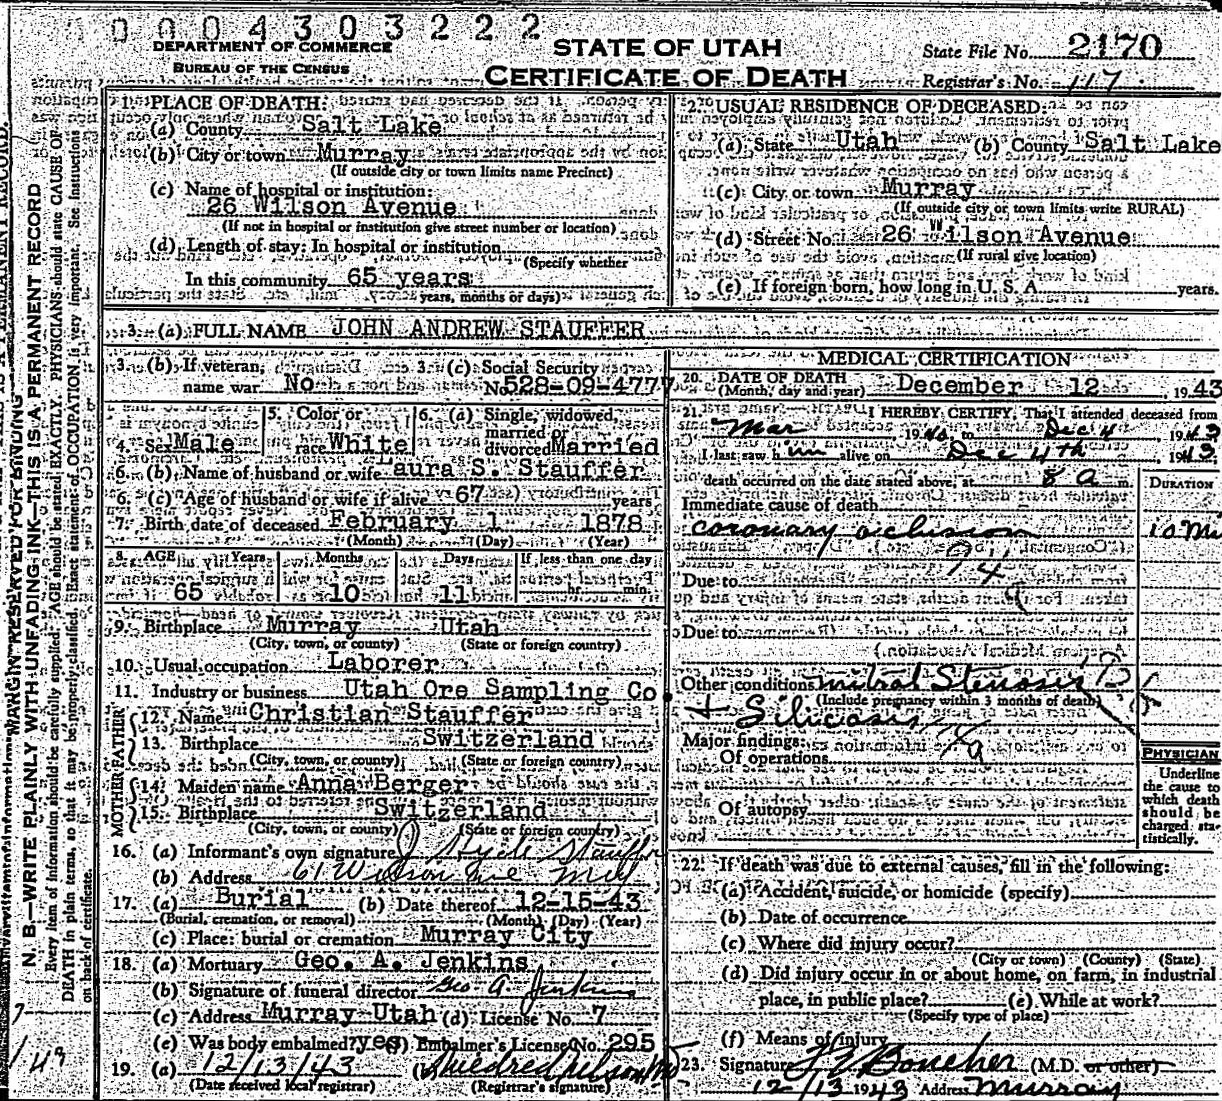 0004303222
DEPARTMENT OF COMMERCE
BUREAU OF THE CENSUS
STATE OF UTAH
CERTIFICATE OF DEATH
State File No. 2170
Registrar's No. 117
MARGIN RESERVED FOR BINDING
N. B.—WRITE PLAINLY WITH UNFADING INK—THIS IS A PERMANENT RECORD
Every item of information should be carefully supplied. AGE should be stated EXACTLY. PHYSICIANS should state CAUSE OF
DEATH in plain terms, so that it may be properly classified. Exact statement of OCCUPATION is very important. See instructions
on back of certificate.
1. PLACE OF DEATH:
(a) County Salt Lake
(b) City or town Murray
(If outside city or town limits name Precinct)
(c) Name of hospital or institution:
26 Wilson Avenue
(If not in hospital or institution give street number or location)
(d) Length of stay: In hospital or institution
(Specify whether
In this community 65 years
years, months or days)
2. USUAL RESIDENCE OF DECEASED:
(a) State Utah (b) County Salt Lake
(c) City or town Murray
(If outside city or town limits write RURAL)
(d) Street No. 26 Wilson Avenue
(If rural give location)
(e) If foreign born, how long in U. S. A. years.
3. (a) FULL NAME JOHN ANDREW STAUFFER
3. (b) If veteran, name war No
3. (c) Social Security No. 528-09-4777
4. Sex Male
5. Color or race White
6. (a) Single, widowed, married or divorced Married
6. (b) Name of husband or wife Laura S. Stauffer
6. (c) Age of husband or wife if alive 67 years
7. Birth date of deceased February 1 1878
(Month) (Day) (Year)
8. AGE Years Months Days If less than one day
65 10 11 hr. min.
9. Birthplace Murray Utah
(City, town, or county) (State or foreign country)
10. Usual occupation Laborer
11. Industry or business Utah Ore Sampling Co.
FATHER
12. Name Christian Stauffer
13. Birthplace Switzerland
(City, town, or county) (State or foreign country)
MOTHER
14. Maiden name Anna Berger
15. Birthplace Switzerland
(City, town, or county) (State or foreign country)
16. (a) Informant's own signature J Hyde Stauffer
(b) Address 61 Wilson Ave
17. (a) Burial (b) Date thereof 12-15-43
(Burial, cremation, or removal) (Month) (Day) (Year)
(c) Place: burial or cremation Murray City
18. (a) Mortuary Geo. A. Jenkins
(b) Signature of funeral director Geo A. Jenkins
(c) Address Murray Utah (d) License No. 7
(e) Was body embalmed? yes (f) Embalmer's License No. 295
19. (a) 12/13/43 (b)
(Date received local registrar) (Registrar's signature)
MEDICAL CERTIFICATION
20. DATE OF DEATH December 12 1943
(Month, day and year)
21. I HEREBY CERTIFY, That I attended deceased from
Mar 1940, to Dec 4, 1943
I last saw him alive on Dec 4th, 1943
death occurred on the date stated above, at 8 a m.
DURATION
Immediate cause of death
coronary oclusion 10 Mi
94 a
Due to
Due to
Other conditions mitral Stenosis
(Include pregnancy within 3 months of death)
+ Silicosis
Major findings:
Of operations
Of autopsy
PHYSICIAN
Underline
the cause to
which death
should be
charged sta-
tistically.
22. If death was due to external causes, fill in the following:
(a) Accident, suicide, or homicide (specify)
(b) Date of occurrence
(c) Where did injury occur?
(City or town) (County) (State)
(d) Did injury occur in or about home, on farm, in industrial
place, in public place? (e) While at work?
(Specify type of place)
(f) Means of injury
23. Signature Boucher (M.D. or other)
12/13 1943 Address Murray